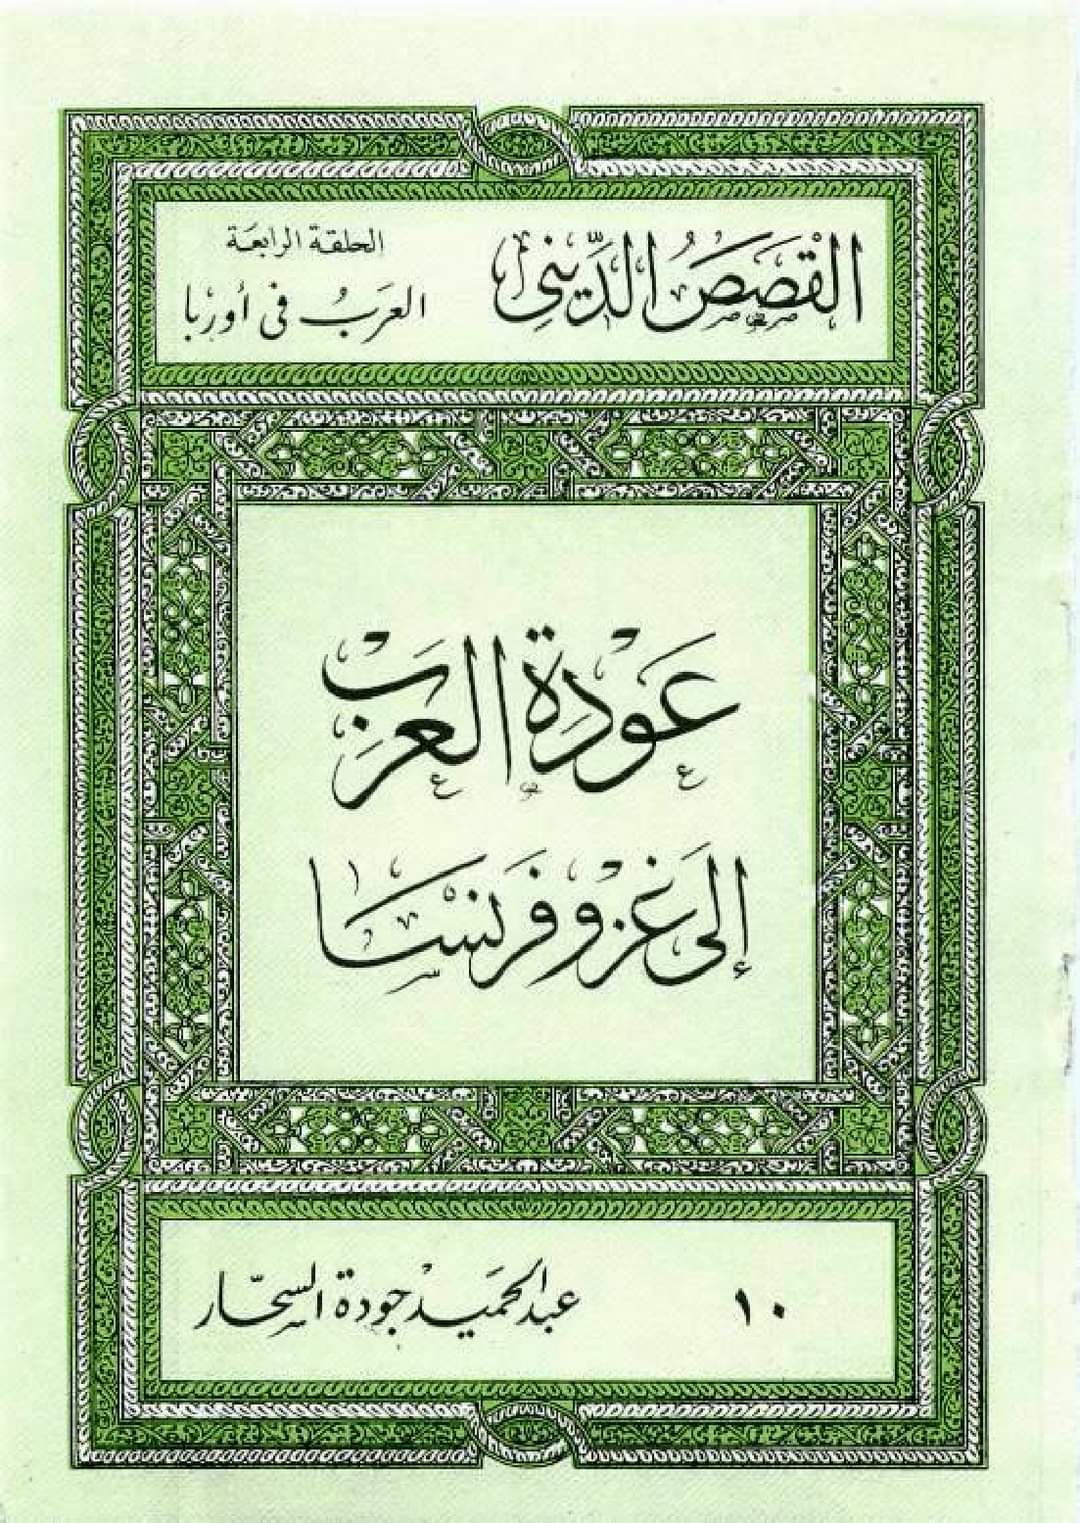 القصص الديني
الحلقة الرابعة
العرب في أوربا
عودة العرب
إلى غزو فرنسا
١٠
عبد الحميد جودة السحار